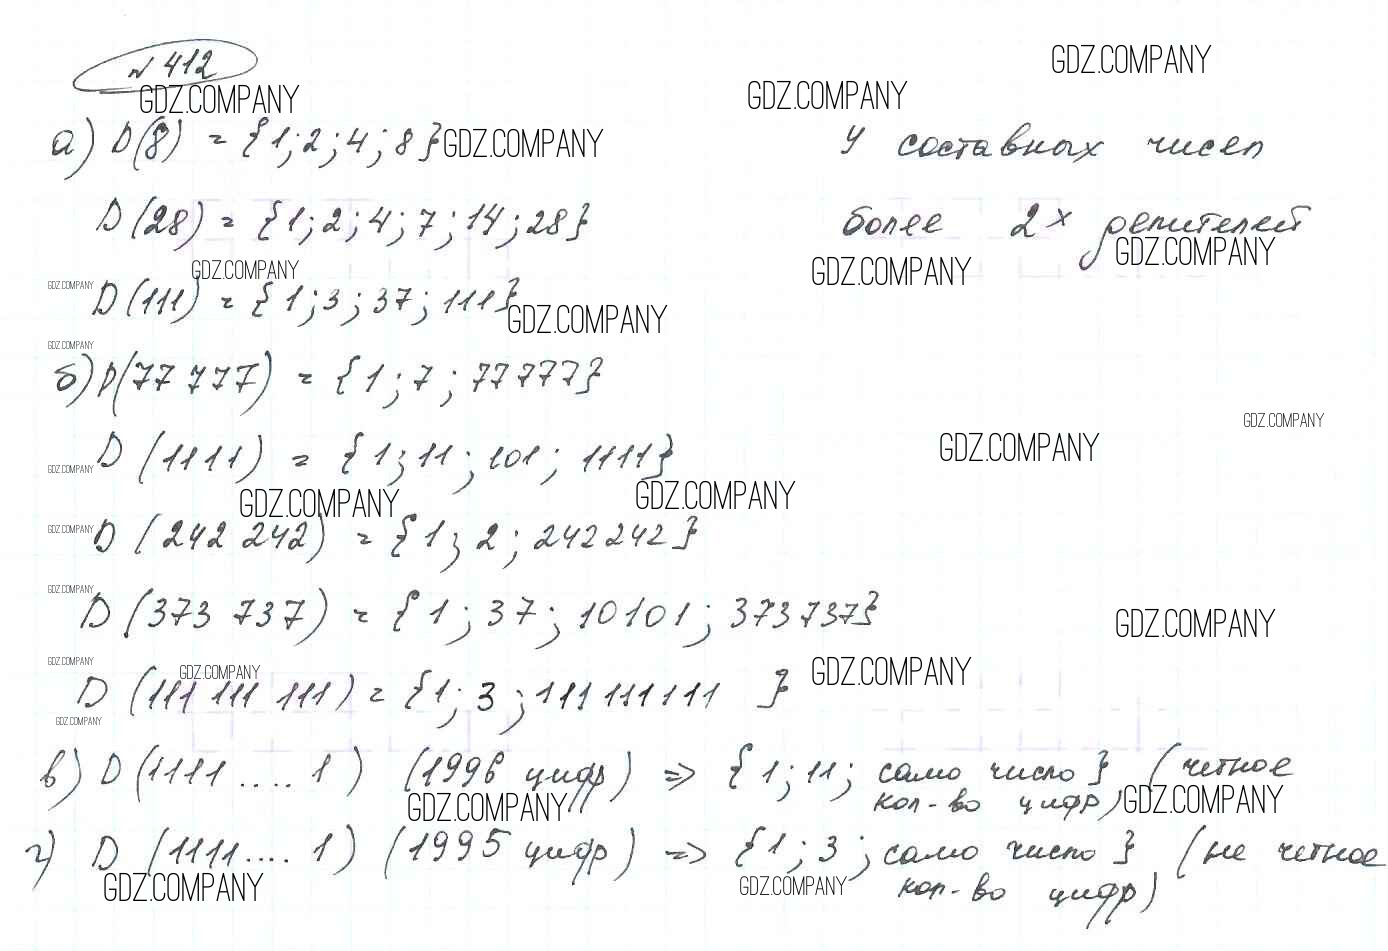 № 412
GDZ.COMPANY
GDZ.COMPANY
GDZ.COMPANY
а) D(8) = {1; 2; 4; 8} GDZ.COMPANY У составных чисел
D(28) = {1; 2; 4; 7; 14; 28} более 2х делителей
GDZ.COMPANY
GDZ.COMPANY
GDZ.COMPANY
GDZ.COMPANY D(111) = {1; 3; 37; 111}
GDZ.COMPANY
GDZ.COMPANY
б) D(77 777) = {1; 7; 77777}
GDZ.COMPANY
GDZ.COMPANY
GDZ.COMPANY D(1111) = {1; 11; 101; 1111}
GDZ.COMPANY
GDZ.COMPANY
GDZ.COMPANY D(242 242) = {1; 2; 242242}
GDZ.COMPANY
D(373 737) = {1; 37; 10101; 373737}
GDZ.COMPANY
GDZ.COMPANY
GDZ.COMPANY
GDZ.COMPANY
D(111 111 111) = {1; 3; 111 111111 }
GDZ.COMPANY
в) D(1111 .... 1) (1996 цифр) => {1; 11; само число} (четное
кол-во цифр)
GDZ.COMPANY
GDZ.COMPANY
г) D(1111 .... 1) (1995 цифр) => {1; 3; само число} (не четное
кол-во цифр)
GDZ.COMPANY
GDZ.COMPANY